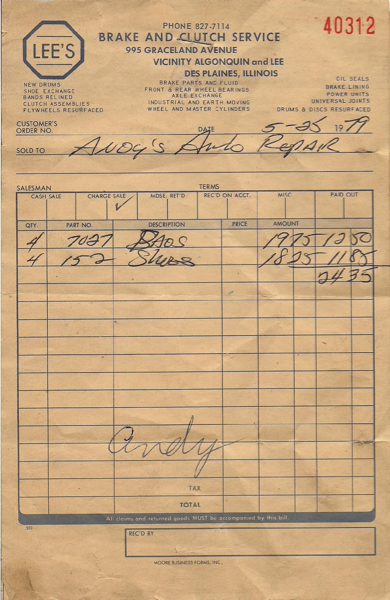 PHONE 827-7114
40312
LEE'S
BRAKE AND CLUTCH SERVICE
995 GRACELAND AVENUE
VICINITY ALGONQUIN and LEE
DES PLAINES, ILLINOIS
NEW DRUMS
SHOE EXCHANGE
BANDS RELINED
CLUTCH ASSEMBLIES
FLYWHEELS RESURFACED
BRAKE PARTS AND FLUID
FRONT & REAR WHEEL BEARINGS
AXLE EXCHANGE
INDUSTRIAL AND EARTH MOVING
WHEEL AND MASTER CYLINDERS
OIL SEALS
BRAKE LINING
POWER UNITS
UNIVERSAL JOINTS
DRUMS & DISCS RESURFACED
CUSTOMER'S
ORDER NO. DATE 5-25 1979
SOLD TO Andy's Auto Repair
SALESMAN TERMS
CASH SALE CHARGE SALE MDSE. RET'D. REC'D ON ACCT. MISC. PAID OUT
✓
QTY. PART NO. DESCRIPTION PRICE AMOUNT
4 7027 PADS 1975 1250
4 152 Shoes 1825 1185
2435
Andy
TAX
TOTAL
All claims and returned goods MUST be accompanied by this bill.
REC'D BY
MOORE BUSINESS FORMS, INC.